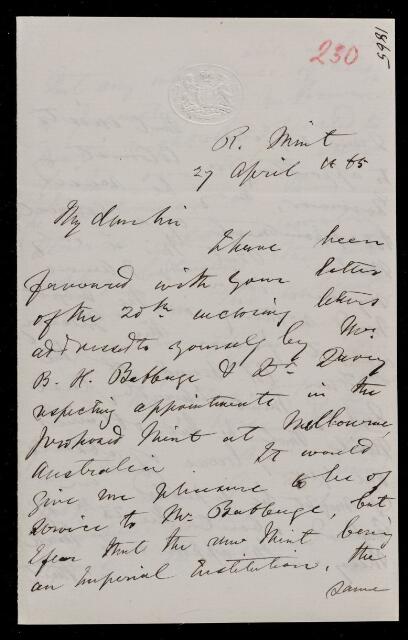 230
5981
R. Mint
27 April 1865
My dear Sir
I have been
favoured with your letter
of the 20th inclosing letters
addressed to yourself by Mr
B. H. Babbage & Dr Davey
respecting appointments in the
proposed Mint at Melbourne,
Australia. It would
give me pleasure to be of
service to Mr Babbage, but
I fear that the new Mint being
an Imperial Institution, the
same